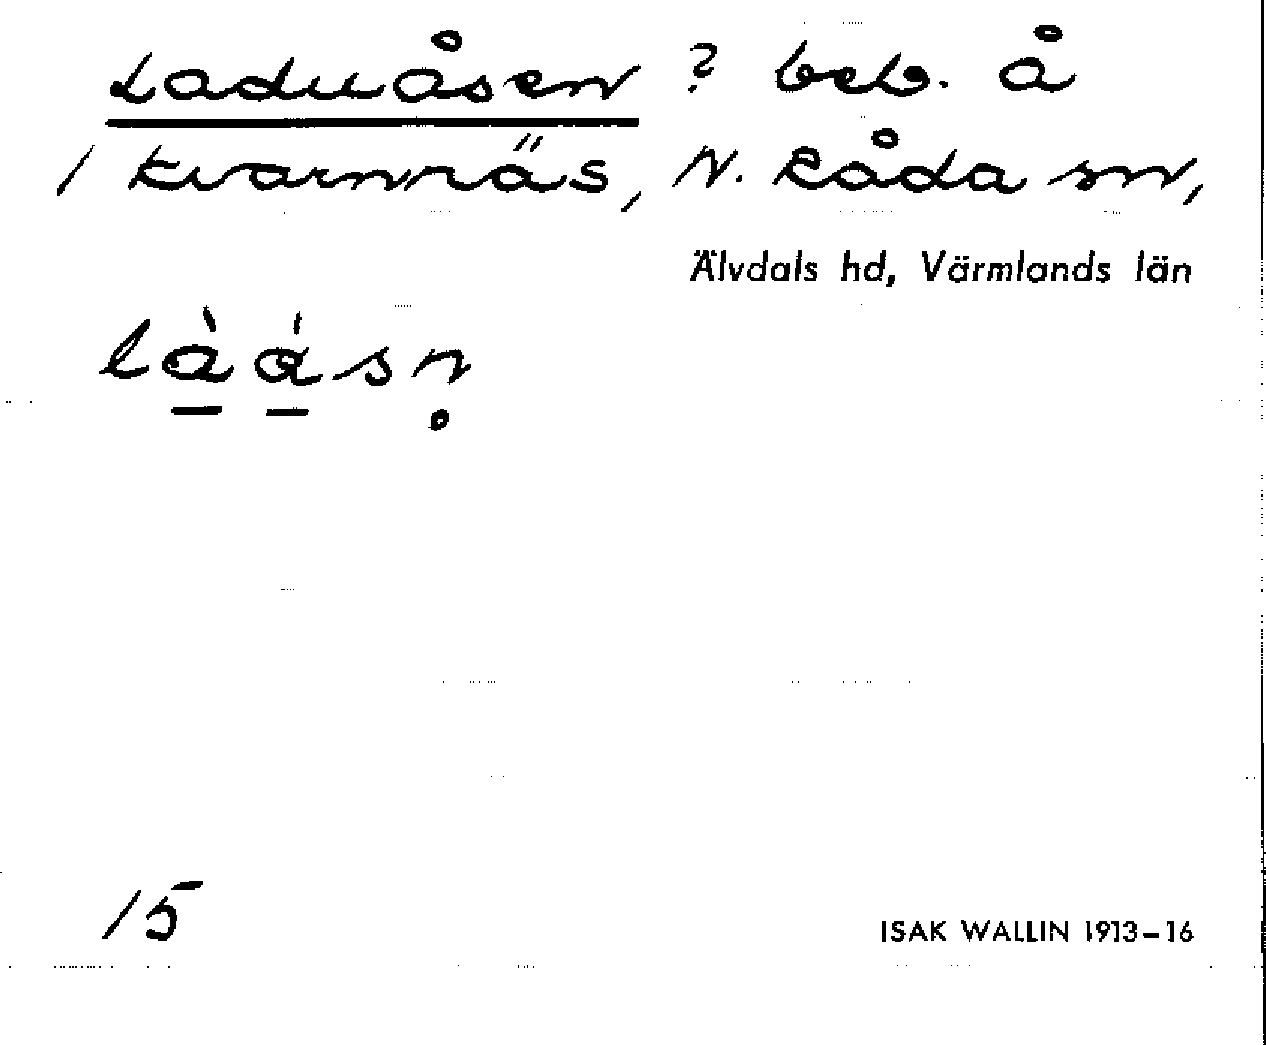 Laduåsen ? beb. å
1 Kvarnnäs, N. Råda sn,
Älvdals hd, Värmlands län
l<u>à</u> <u>á</u>sṇ
15
ISAK WALLIN 1913–16